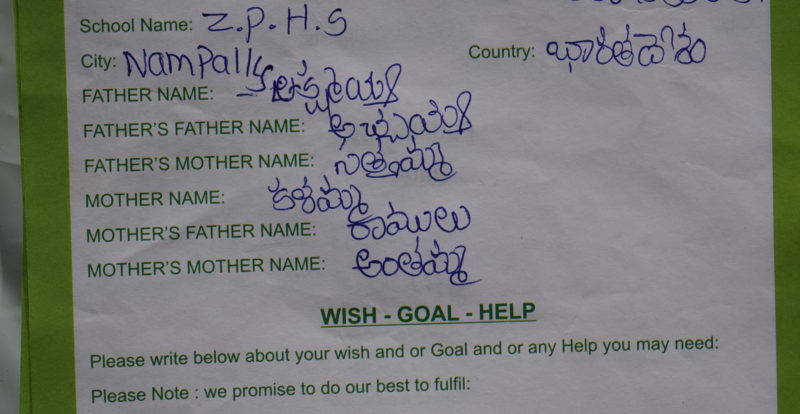 School Name: Z.P.H.S
City: Nampally Country: భారతదేశం
FATHER NAME:
FATHER'S FATHER NAME: అచ్చయ్య
FATHER'S MOTHER NAME: సత్తమ్మ
MOTHER NAME: కళమ్మ
MOTHER'S FATHER NAME: రాములు
MOTHER'S MOTHER NAME: అంతమ్మ
WISH - GOAL - HELP
Please write below about your wish and or Goal and or any Help you may need:
Please Note : we promise to do our best to fulfil: